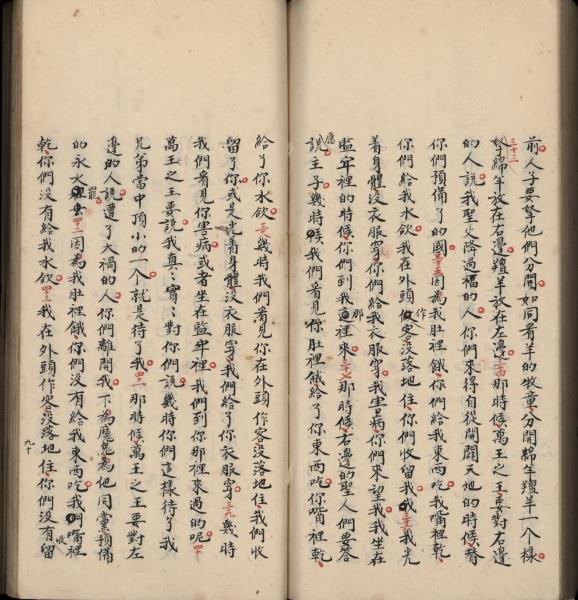 前人子要拏他們分開如同看羊的牧童分開綿羊羶羊一个樣
三十三拏綿羊放在右邊羶羊放在左邊三十四那時候萬王之王要對右邊
的人說我聖父降過福的人你們來得自從開闢天地的時候替
你們預備了的國三十五因為我肚裡餓你們給我東西吃我嘴裡乾
你們給我水飲我在外頭作客沒落地住你們收留我三十六我光
着身體沒衣服穿你們給我衣服穿我害病你們來望我我坐在
監牢裡的時候你們到我那裡來三十七那時候右邊的聖人們要答應
說主子幾時候我們看見你肚裡餓給了你東西吃你嘴裡乾
給了你水飲三八幾時我們看見你在外頭作客沒落地住我們收
留了你或是光着身體沒衣服穿我們給了你衣服穿三九幾時
我們看見你害病或者坐在監牢裡我們到你那裡來過的呢四十
萬王之王要說我真真實實對你們說幾時你們這樣待了我
兄弟當中頂小的一个就是待了我四一那時候萬王之王要對左
邊的人說遭了大禍的人你們離開我下為魔鬼為他同黨預備
的永火裡去罷四二因為我肚裡餓你們沒有給我東西吃我嘴裡
乾你們沒有給我水飲四三我在外頭作客沒落地住你們沒有留
收
九十